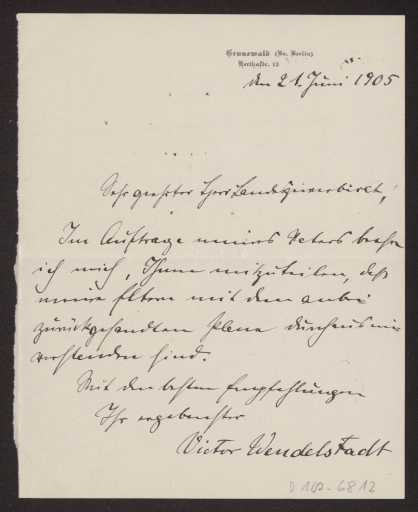 Grunewald (Bz. Berlin)
Herthastr. 12
den 21. Juni 1905
Sehr geehrter Herr Landsyndikus,
Im Auftrage meines Vaters beehre
ich mich, Ihnen mitzuteilen, daß
meine Eltern mit dem anbei
zurückgesandten Plane durchaus ein
verstanden sind.
Mit den besten Empfehlungen
Ihr ergebenster
Victor Wendelstadt
D 182-6812